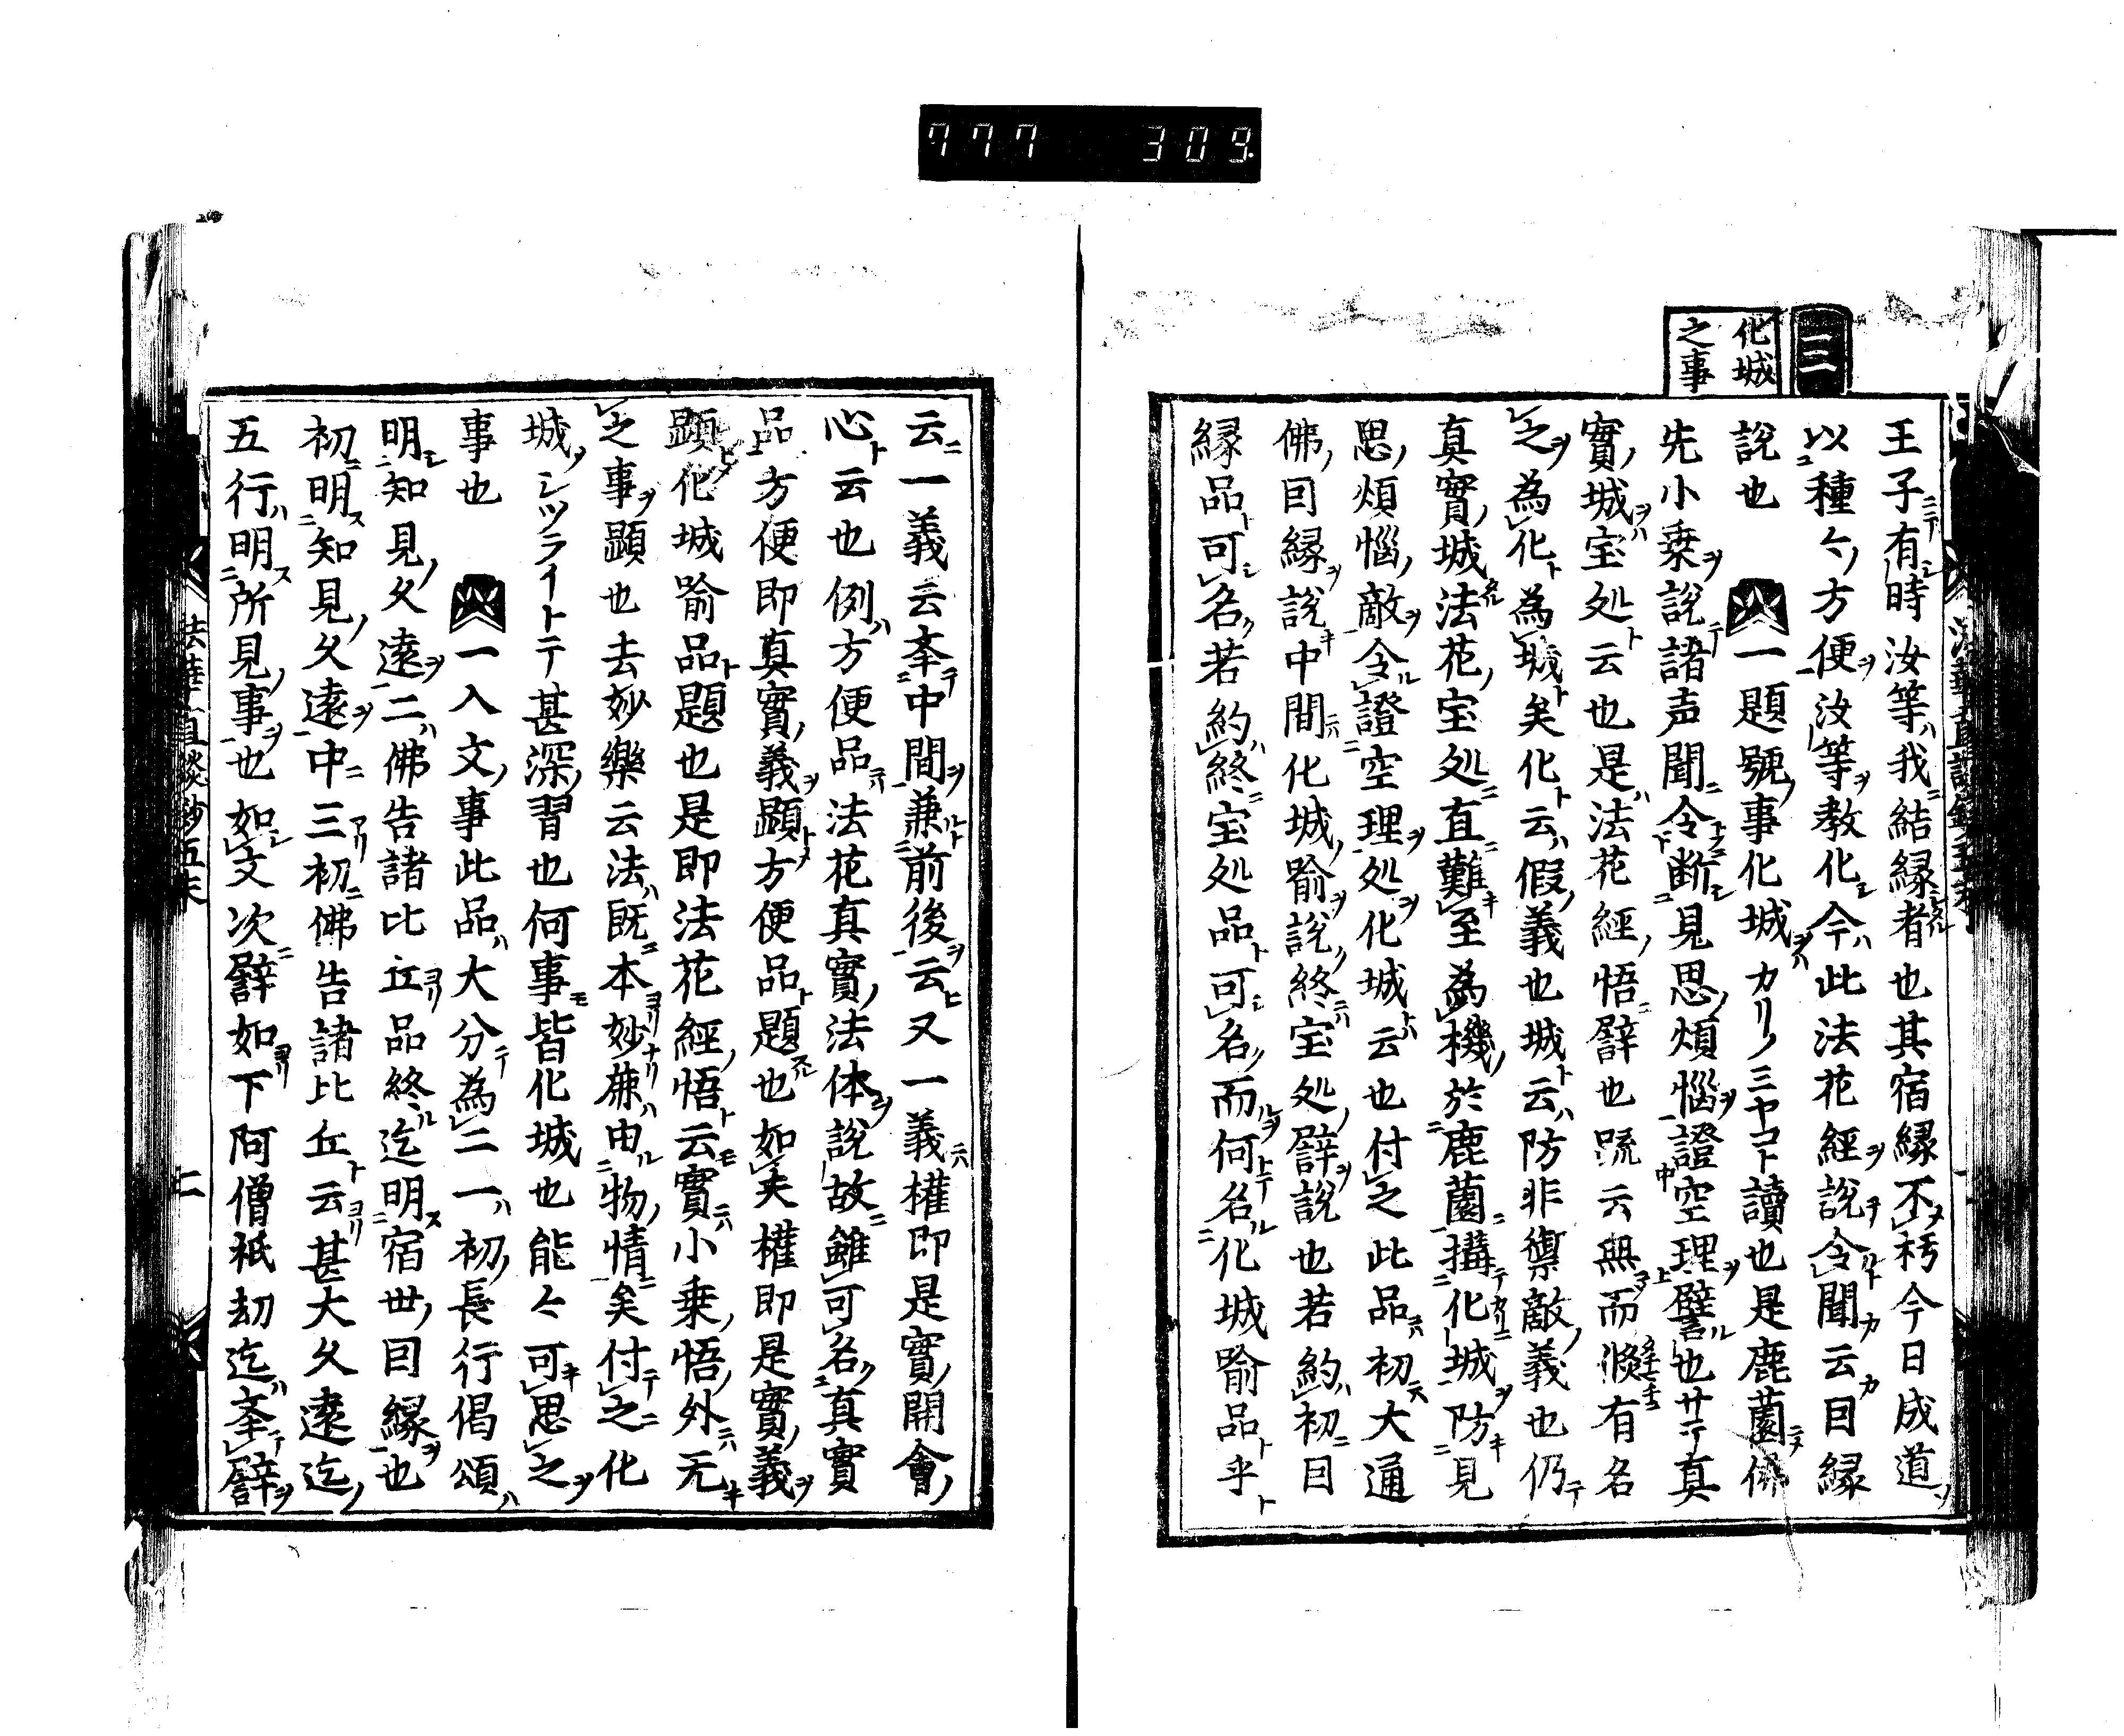 777 309
三
化城
之事
王子有時汝等我結緣者也其宿縁不朽今日成道
以種々方便汝等教化今此法花經説令聞云因縁
説也 一題號事化城カリノミヤコト讀也是鹿薗佛
先小乗説諸声聞令断見思煩惱證空理譬也サテ真
實城宝処云也是法花經悟譬也疏云無而倏有名
之為化為城矣化云假義也城云防非禦敵義也仍
真實城法花宝処直難至為機於鹿薗搆化城防見
思煩惱敵令證空理処化城云也付之此品初大通
佛因縁説中間化城喻説終宝処譬説也若約初因
縁品可名若約終宝処品可名而何名化城喻品乎
云一義云夲中間兼前後云又一義權即是實開會
心云也例方便品法花真實法体説故雖可名真實
品方便即真實義顕方便品題也如夫權即是實義
顕化城喻品題也是即法花經悟云實小乗悟外无
之事顕也去妙樂云法既本妙麁由物情矣付之化
城シツライトテ甚深習也何事皆化城也能々可思之
事也 一入文事此品大分為二一初長行偈頌
明知見久遠二佛告諸比丘品終迄明宿世因縁也
初明知見久遠中三初佛告諸比丘云甚大久遠迄
五行明所見事也如文次譬如下阿僧祇劫迄夲譬
法華直談鈔五末 二